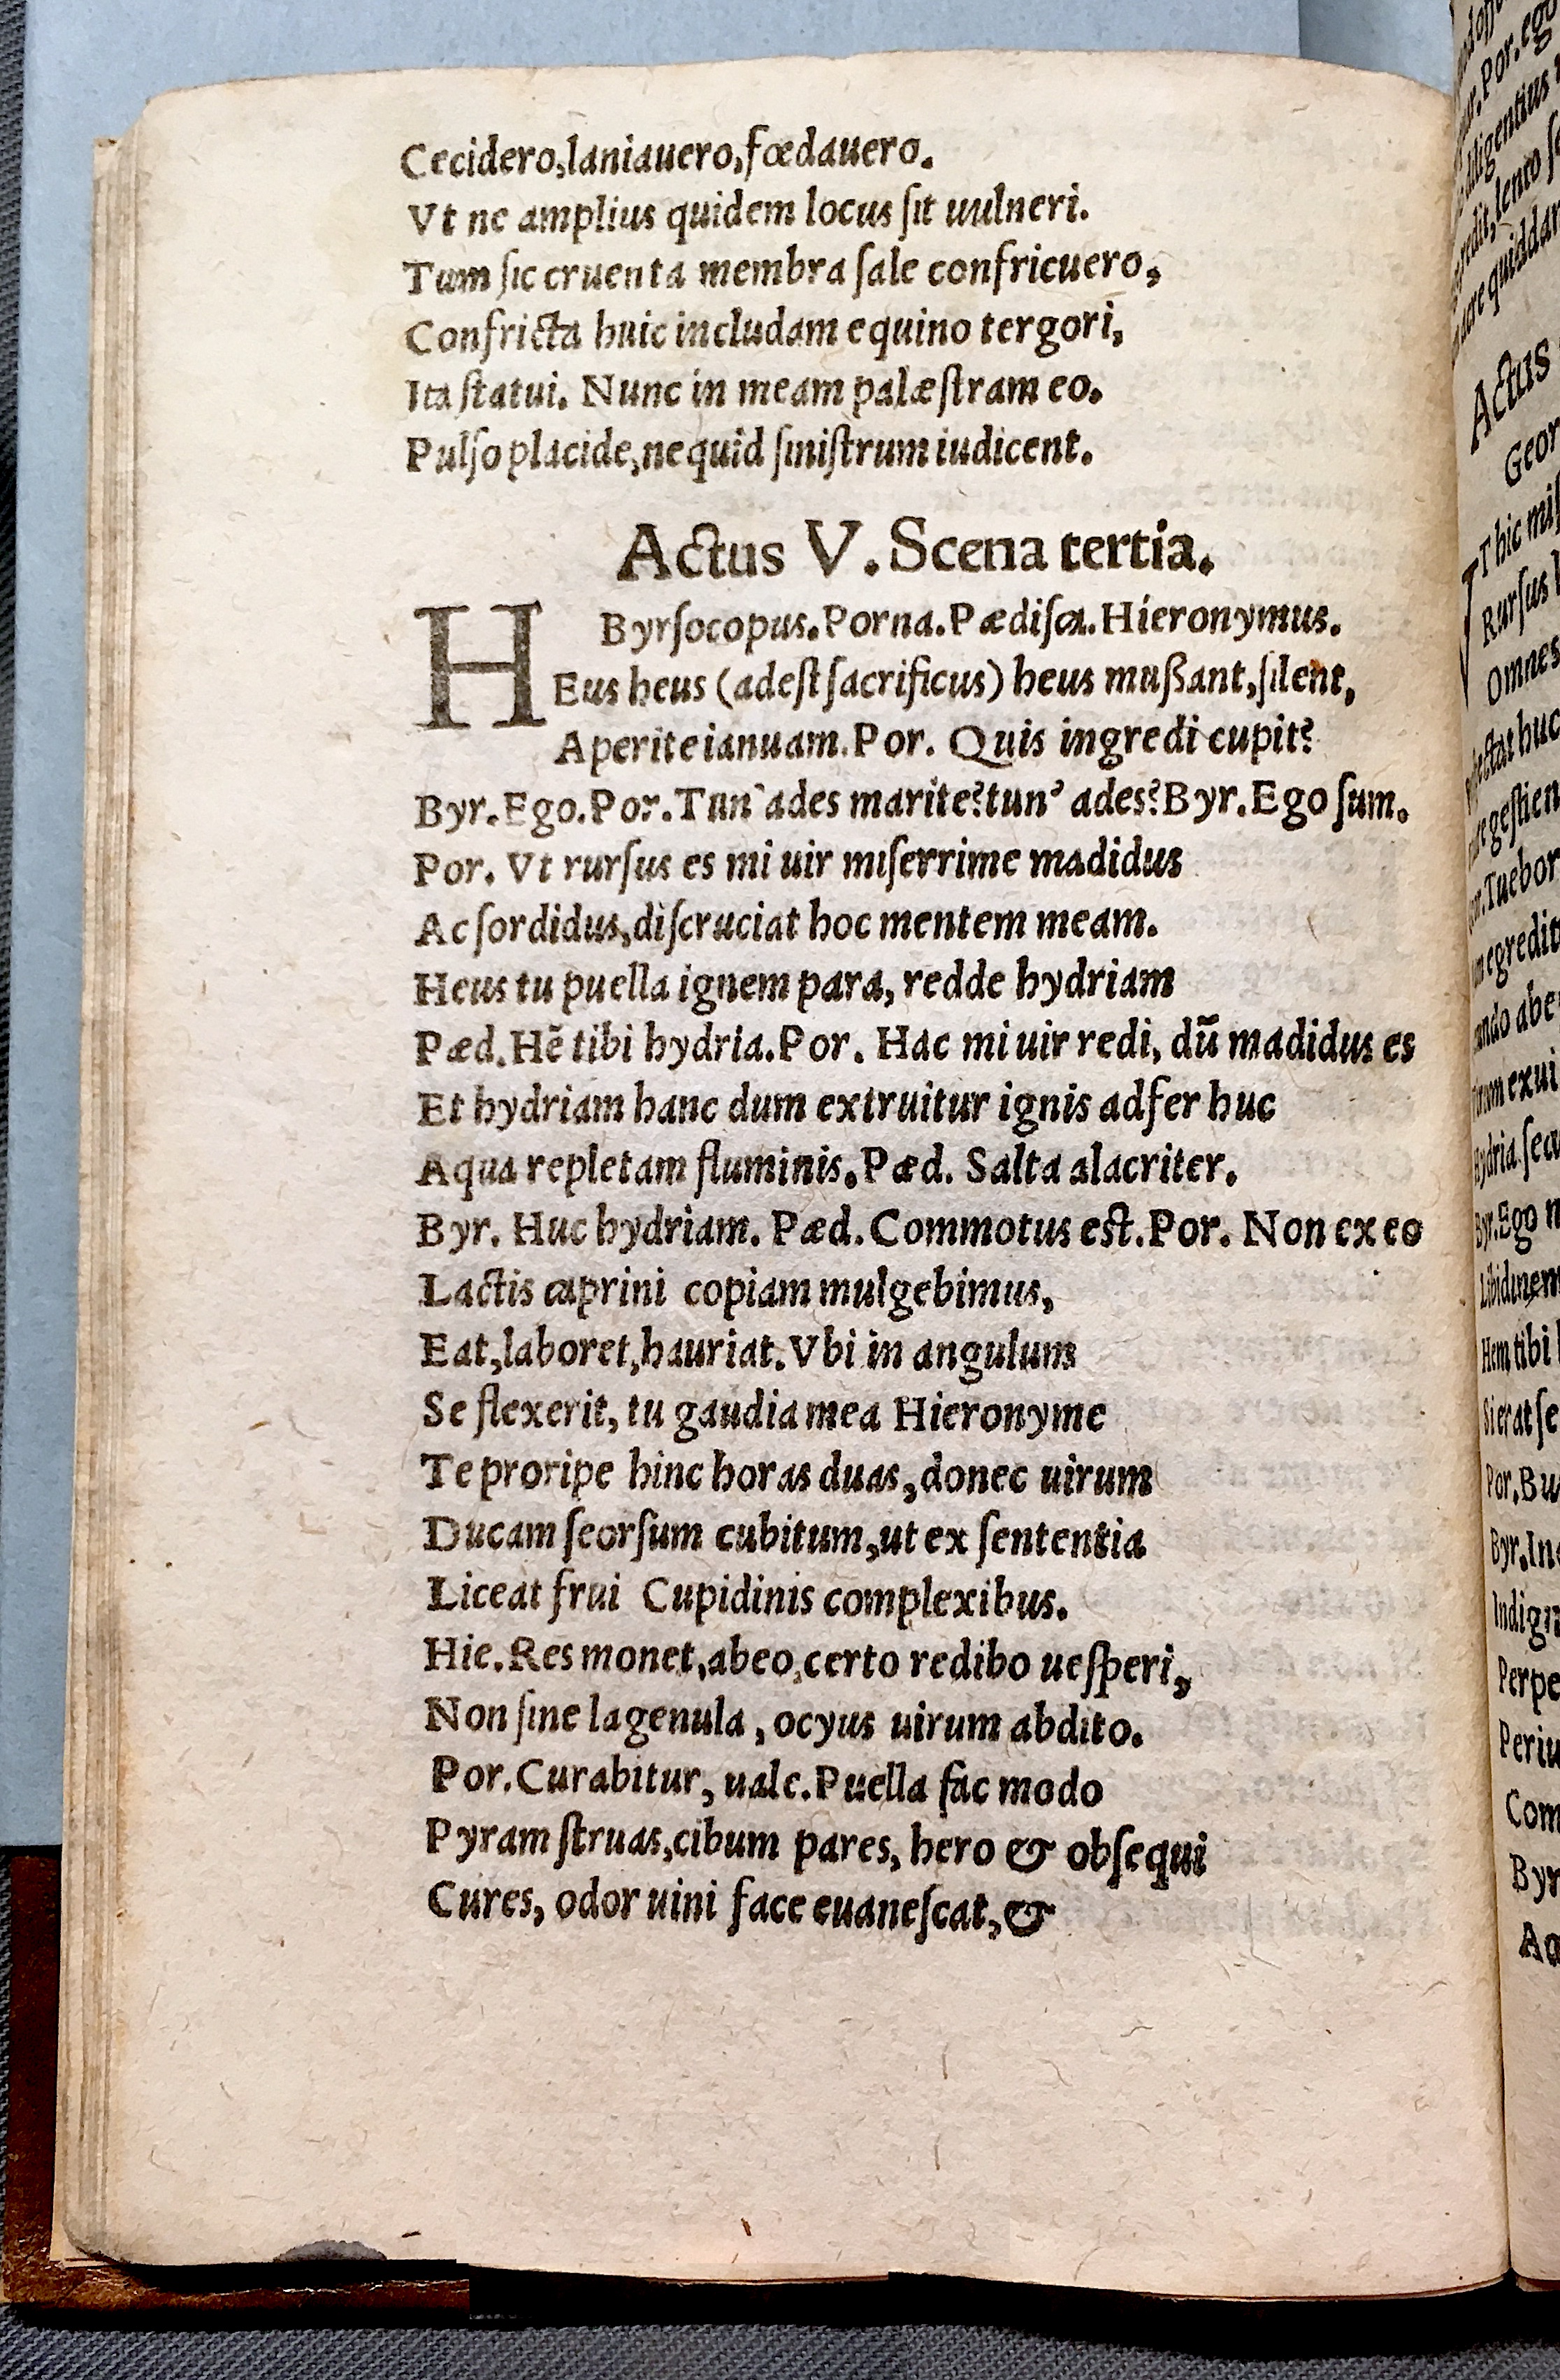 Cecidero,laniauero,fœdauero.
Vt ne amplius quidem locus ſit uulneri.
Tum ſic cruenta membra ſale confricuero,
Confricta huic includam equino tergori,
Ita ſtatui. Nunc in meam palæſtram eo.
Pulſo placide,ne quid ſiniſtrum iudicent.
Actus V. Scena tertia.
Byrſocopus.Porna.Pædiſca.Hieronymus.
HEus heus (adeſt ſacrificus) heus mußant,ſilent,
Aperite ianuam.Por. Quis ingredi cupit?
Byr.Ego.Por.Tun' ades marite?tun' ades?Byr.Ego ſum.
Por. Vt rurſus es mi uir miſerrime madidus
Ac ſordidus,diſcruciat hoc mentem meam.
Heus tu puella ignem para, redde hydriam
Pæd.Hẽ tibi hydria.Por. Hac mi uir redi, dũ madidus es
Et hydriam hanc dum extruitur ignis adfer huc
Aqua repletam fluminis.Pæd. Salta alacriter.
Byr. Huc hydriam. Pæd.Commotus est.Por. Non ex eo
Lactis caprini copiam mulgebimus,
Eat,laboret,hauriat.Vbi in angulum
Se flexerit, tu gaudia mea Hieronyme
Te proripe hinc horas duas,donec uirum
Ducam ſeorſum cubitum,ut ex ſententia
Liceat frui Cupidinis complexibus.
Hie.Res monet,abeo,certo redibo ueſperi,
Non ſine lagenula,ocyus uirum abdito.
Por.Curabitur, uale.Puella fac modo
Pyram ſtruas,cibum pares, hero & obſequi
Cures, odor uini face euaneſcat,&
Actus
Geor
Rurſus
Omnes
geſtien
Tuebor
egredit
exui
Byr.Ego
Libidinem
Hem tibi
Si erat ſe
Por.Bu
Byr.In
Indign
Perpe
Periu
Com
Byr